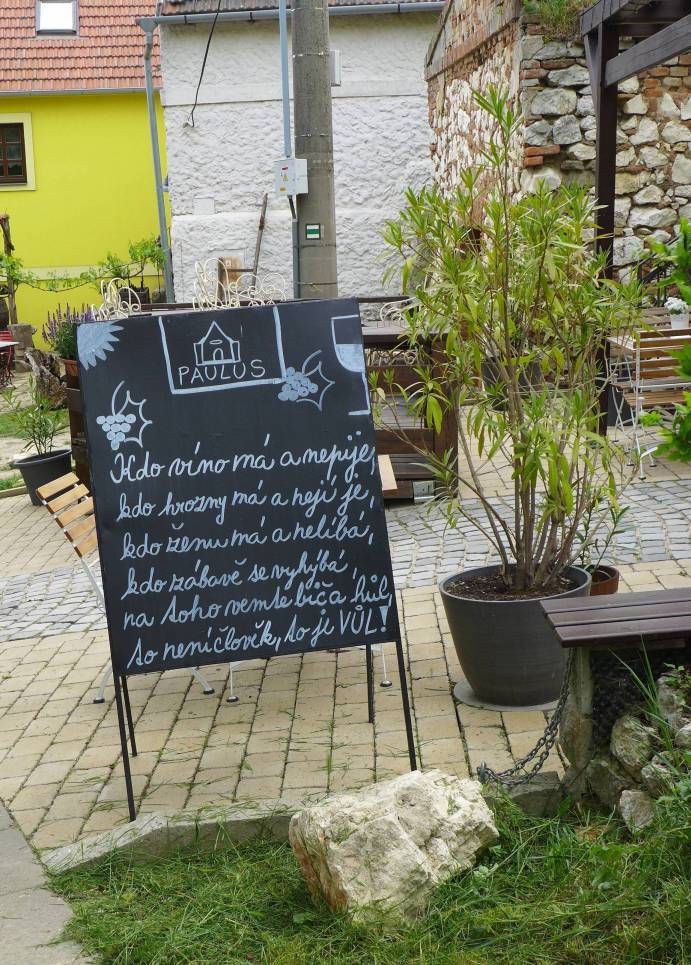 PAULUS
Kdo víno má a nepije,
kdo hrozny má a nejí je,
kdo ženu má a nelíbá,
kdo zábavě se vyhýbá,
na toho vemte bič a hůl,
to není člověk, to je VŮL!